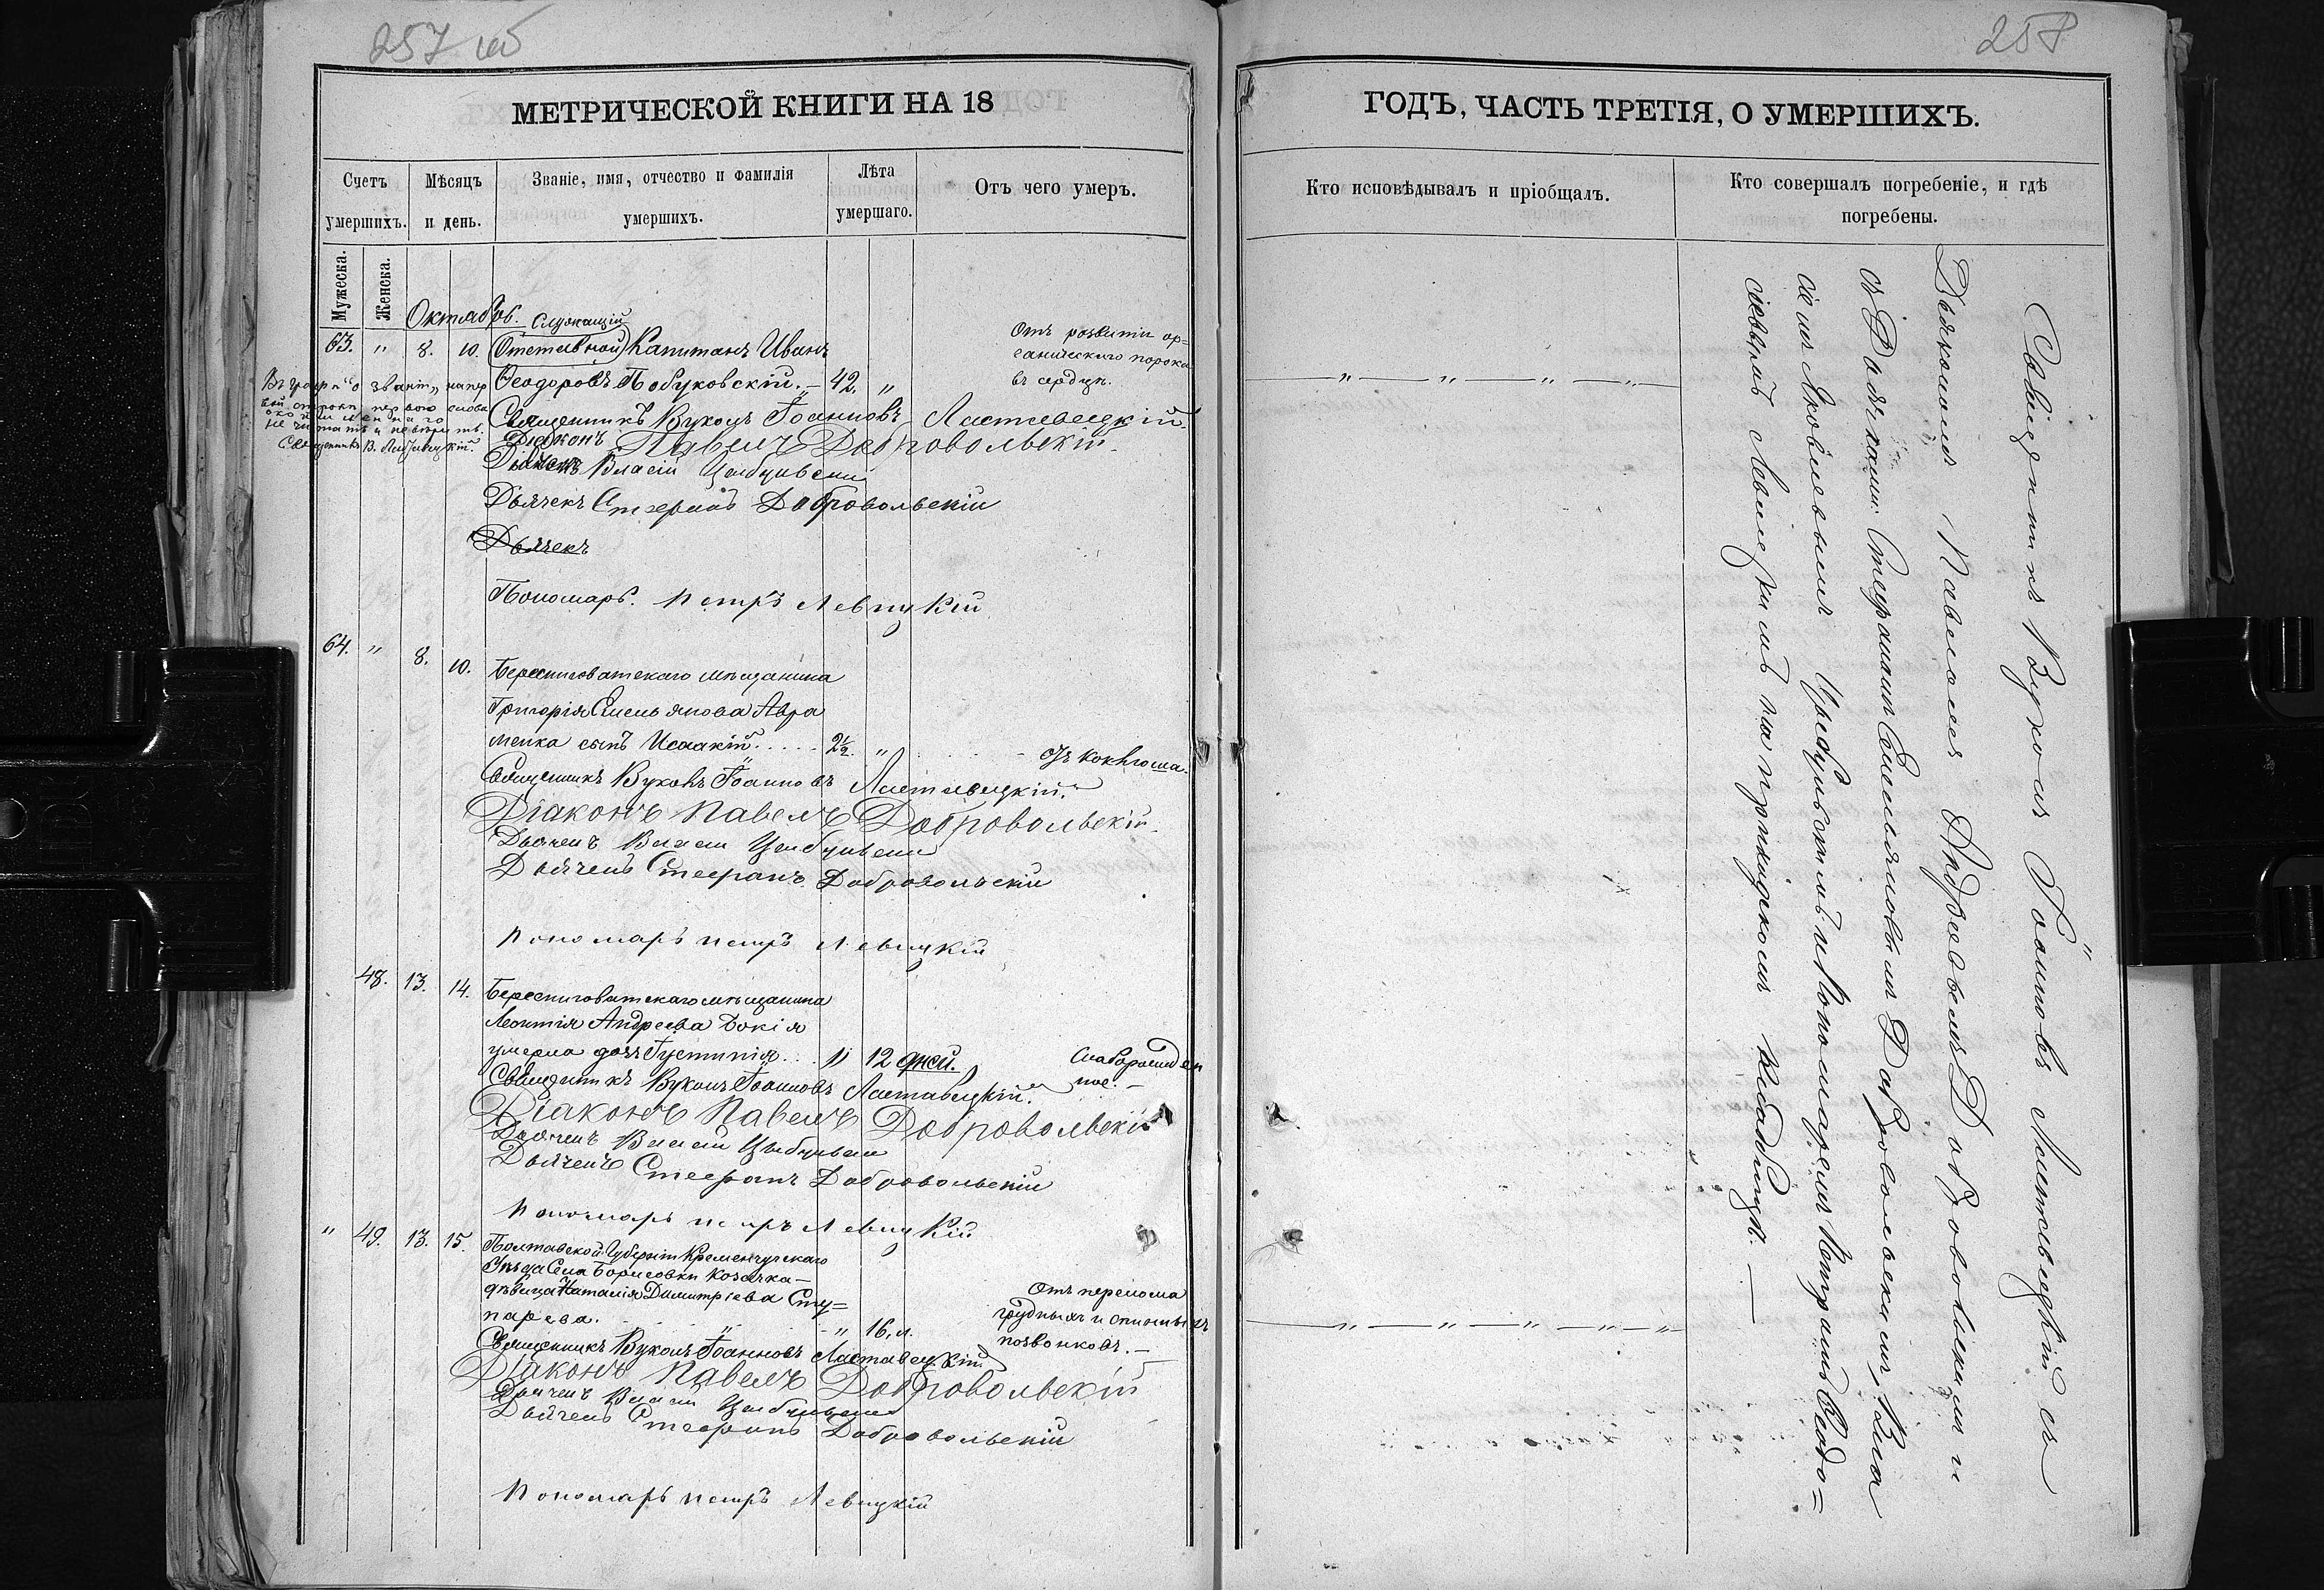 257 об
МЕТРИЧЕСКОЙ КНИГИ НА 18
Счетъ умершихъ.
Мужеска.
Женска.
Мѣсяцъ и день.
Званіе, имя, отчество и фамилія умершихъ.
Лѣта умершаго.
Отъ чего умеръ.
Октябрь.
Служащій
63. " 8. 10. Отставной Капитанъ Иванъ
Ѳеодоровъ Побуковскій. — 42. "
Отъ развитія ор=
ганическаго порока
въ сердцѣ.
Въ графѣ о званіи, на пер
вой строкѣ, первого слова
не читать и не вѣрить.
Священникъ В. Ластавецкій.
Священникъ Вуколъ Іоанновъ Ластавецкій
Діаконъ Павелъ Добровольскій.
Дьячекъ Власій
Дьячекъ Стефанъ Добровольскій
Дьячекъ
Пономарь Петръ Левицкій
64. " 8. 10. Бересниговатскаго мѣщанина
Григорія Емельянова Авра
менка сынъ Исаакій ..... 2½. " Отъ коклюша.
Священникъ Вуколъ Іоанновъ Ластавецкій.
Діаконъ Павелъ Добровольскій.
Дьячекъ Власій
Дьячекъ Стефанъ Добровольскій
Пономарь Петръ Левицкій
48. 13. 14. Бересниговатскаго мѣщанина
Леонтія Андреева Бокія
умерла дочь Іустинія ... " 12 дней. Слаборожден
ное. —
Священникъ Вуколъ Іоанновъ Ластавецкій.
Діаконъ Павелъ Добровольскій
Дьячекъ Власій
Дьячекъ Стефанъ Добровольскій
Пономарь Петръ Левицкій
" 49. 13. 15. Полтавской Губерніи Кременчугскаго
Уѣзда Села Борисовки козачка —
дѣвица Наталія Димитріева Сту=
парева. " 16. л.
Отъ перелома
грудныхъ и спинныхъ
позвонковъ. —
Священникъ Вуколъ Іоанновъ Ластавецкій
Діаконъ Павелъ Добровольскій
Дьячекъ Власій
Дьячекъ Стефанъ Добровольскій
Пономарь Петръ Левицкій
258
ГОДЪ, ЧАСТЬ ТРЕТІЯ, О УМЕРШИХЪ.
Кто исповѣдывалъ и пріобщалъ.
Кто совершалъ погребеніе, и гдѣ погребены.
— " — " — " — " —
— " — " — " — " — " —
Священникъ Вуколъ Іоанновъ Ластавецкій съ
Діакономъ Павломъ Андреевымъ Добровольскимъ и
съ Дьячками: Стефаномъ Емельяновымъ Добровольскимъ, Вла
сіемъ Яковлевымъ и Пономаремъ Петромъ Ѳеодо=
сіевымъ Левицкимъ на приходскомъ кладбищѣ. —